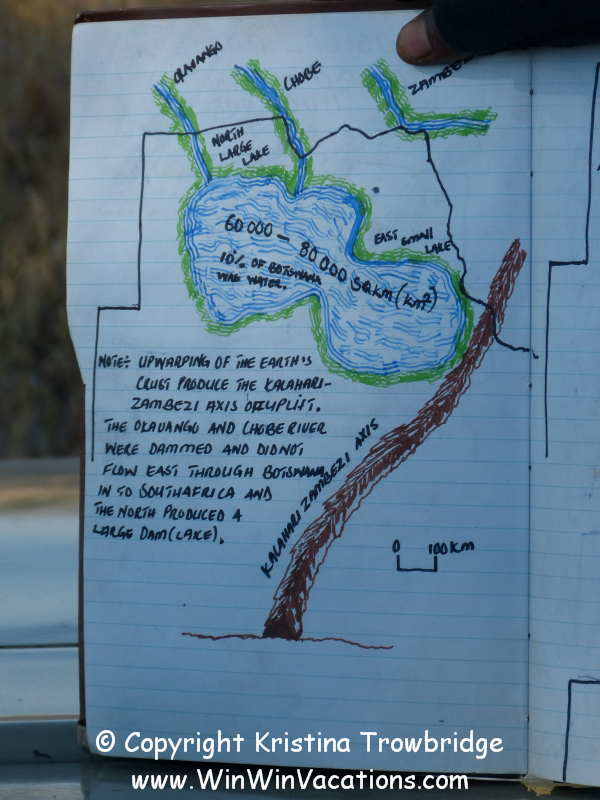 OKAVANGO
CHOBE
ZAMBEZ
NORTH
LARGE
LAKE
EAST SMALL
LAKE
60 000 – 80 000 SQ.KM (km²)
10% OF BOTSWANA
WAS WATER.
NOTE: UPWARPING OF THE EARTH'S
CRUST PRODUCE THE KALAHARI-
ZAMBEZI AXIS OF UPLIFT.
THE OKAVANGO AND CHOBE RIVER
WERE DAMMED AND DIDNOT
FLOW EAST THROUGH BOTSWANA
IN TO SOUTHAFRICA AND
THE NORTH PRODUCED A
LARGE DAM (LAKE).
KALAHARI ZAMBEZI AXIS
0 100 KM
© Copyright Kristina Trowbridge
www.WinWinVacations.com